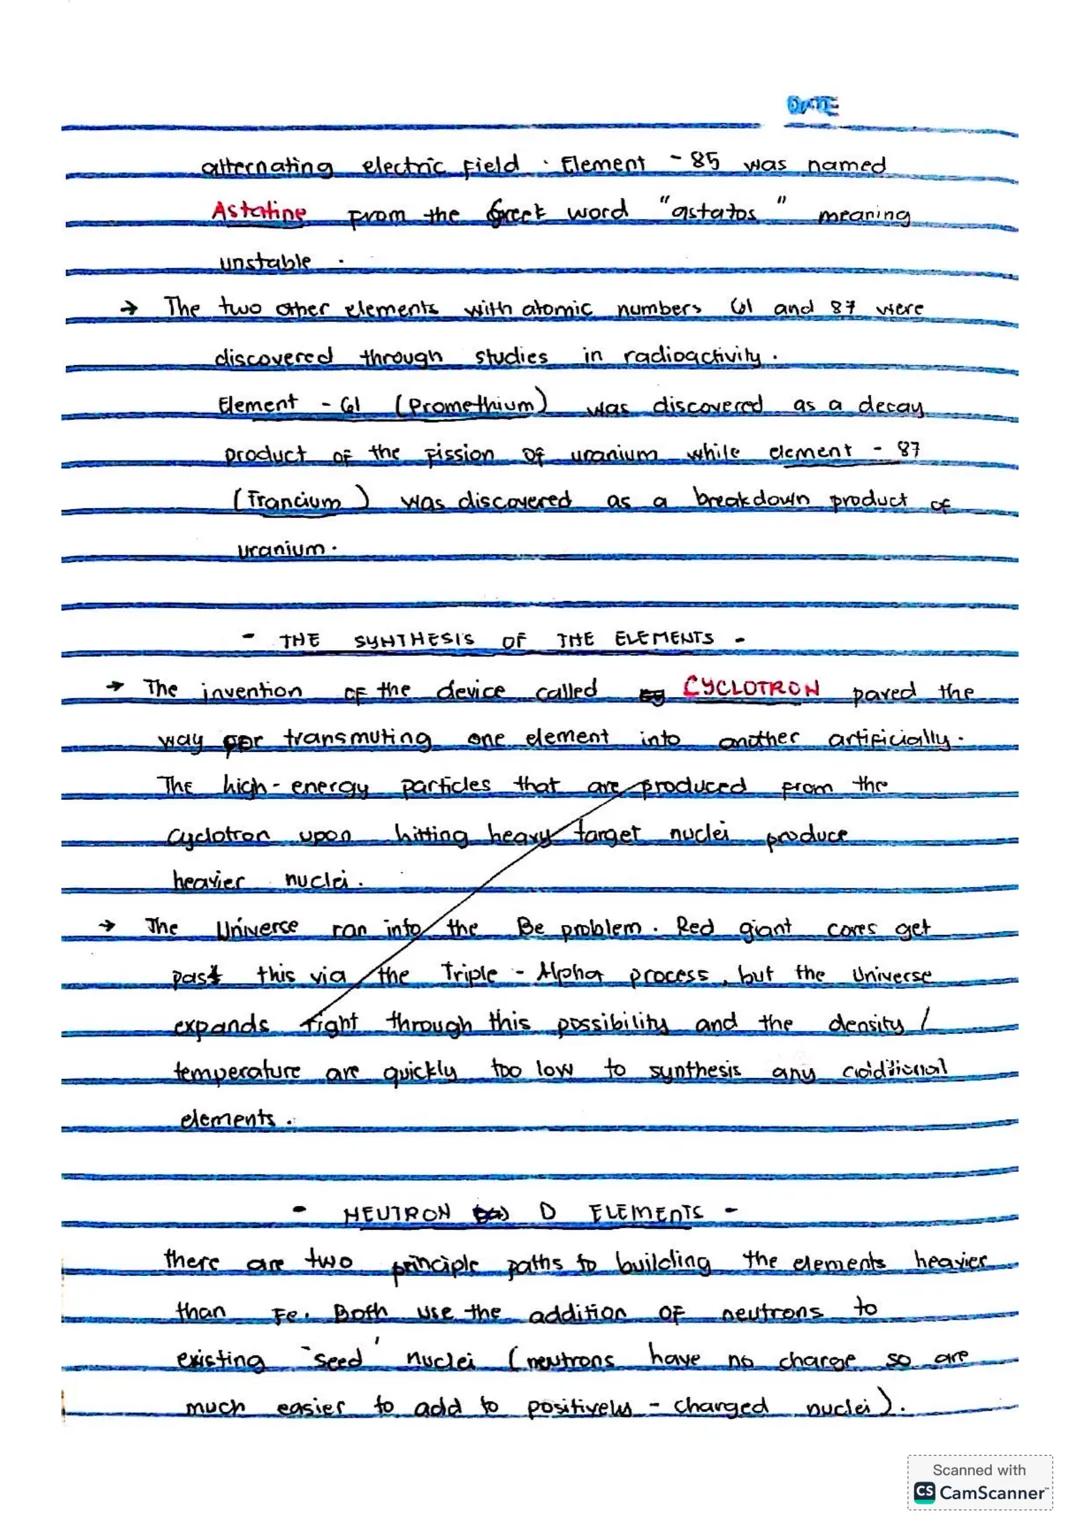 DATE
alternating electric field. Element - 85 was named
Astatine from the Greek word "astatos" meaning
unstable.
→ The two other elements with atomic numbers 61 and 87 were
discovered through studies in radioactivity.
Element - 61 (Promethium) was discovered as a decay
product of the fission of uranium while element - 87
(Francium) was discovered as a breakdown product of
uranium.
- THE SYNTHESIS OF THE ELEMENTS -
→ The invention of the device called CYCLOTRON paved the
way for transmuting one element into another artificially.
The high-energy particles that are produced from the
cyclotron upon hitting heavy target nuclei produce
heavier nuclei.
→ The Universe ran into the Be problem. Red giant cores get
past this via the Triple - Alpha process, but the Universe
expands right through this possibility and the density /
temperature are quickly too low to synthesis any additional
elements.
- NEUTRON D ELEMENTS -
there are two principle paths to building the elements heavier
than Fe. Both use the addition of neutrons to
existing "seed' nuclei (neutrons have no charge so are
much easier to add to positively - charged nuclei).
Scanned with
CS CamScanner